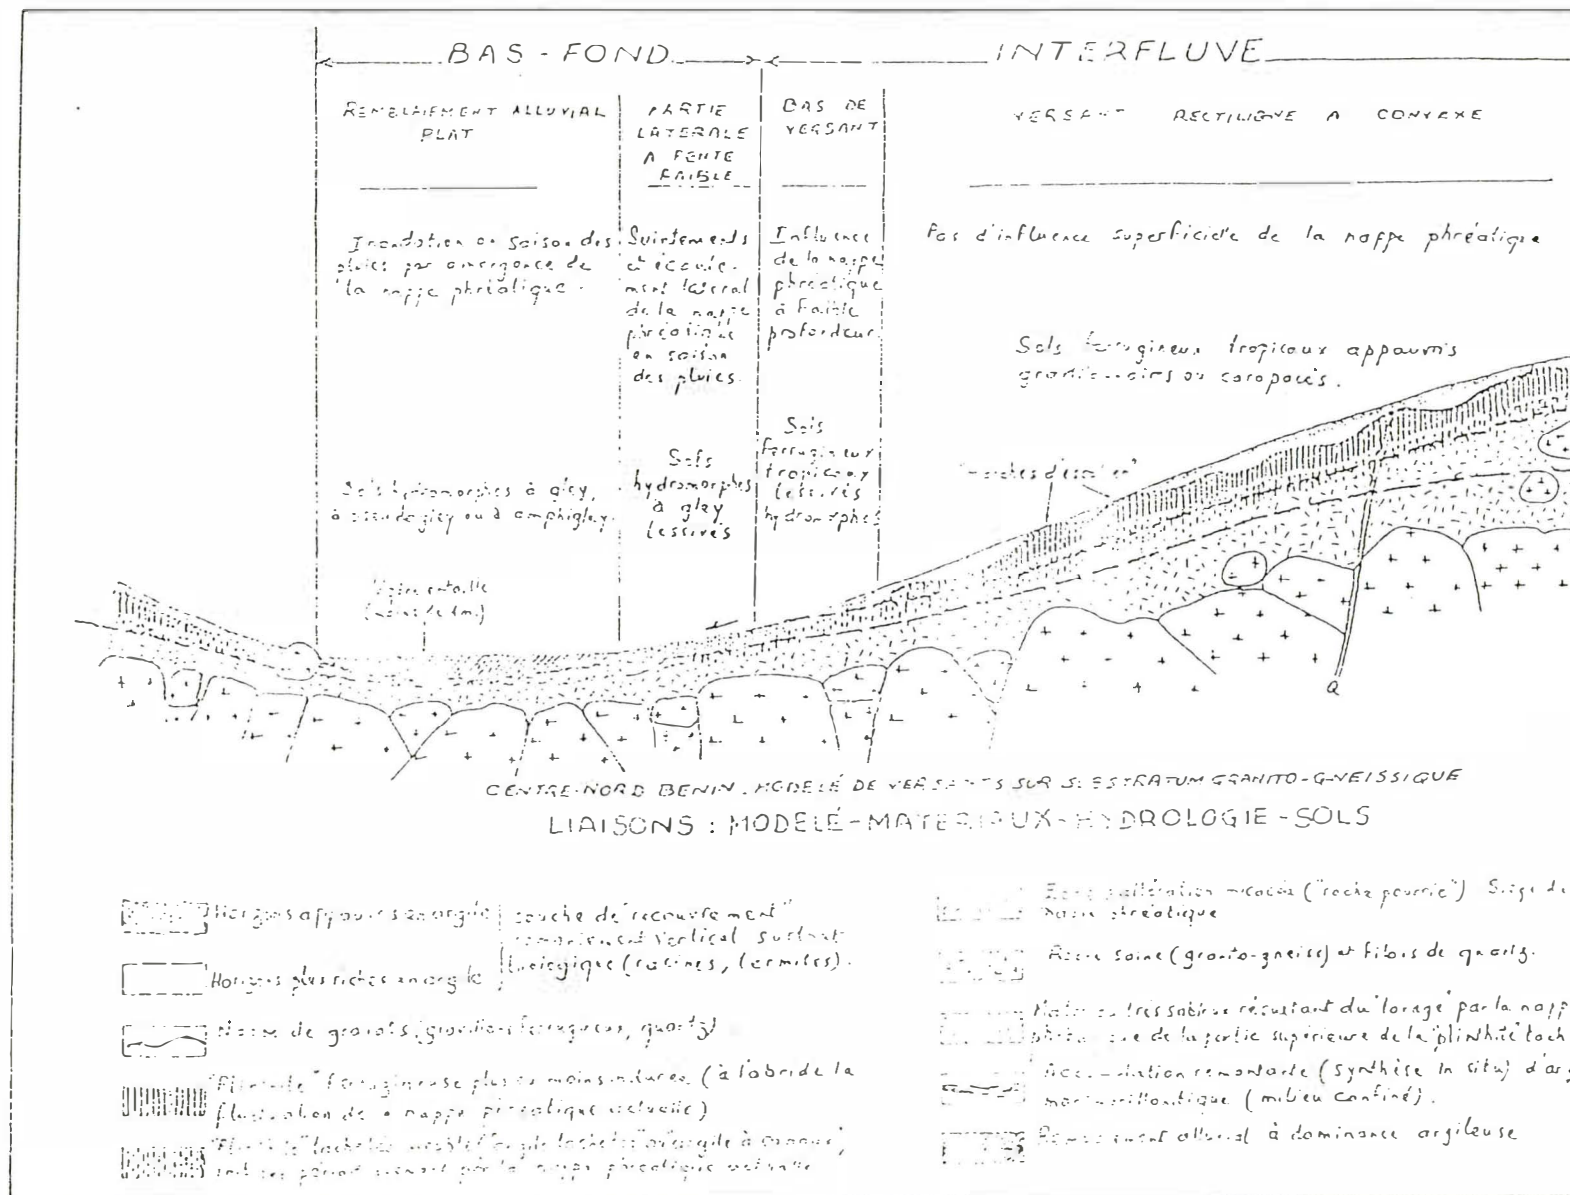 BAS-FOND
INTERFLUVE
REMBLAIEMENT ALLUVIAL
PLAT
PARTIE
LATERALE
A PENTE
FAIBLE
BAS DE
VERSANT
VERSANT RECTILIGNE A CONVEXE
Inondation en saison des
pluies par émergence de
la nappe phréatique.
Suintements
et écoule-
ment latéral
de la nappe
phréatique
en saison
des pluies.
Influence
de la nappe
phréatique
à faible
profondeur.
Pas d'influence superficielle de la nappe phréatique
Sols ferrugineux tropicaux appauvris
ou carapacés.
Sols hydromorphes à gley,
à pseudogley ou à amphigley.
Sols
hydromorphes
à gley
lessivés
Sols
ferrugineux
tropicaux
lessivés
hydromorphes
"marches d'escalier"
entaille
(moins de 1m)
Q
CENTRE-NORD BENIN. MODELÉ DE VERSANTS SUR SUBSTRATUM GRANITO-GNEISSIQUE
LIAISONS : MODELÉ-MATERIAUX-HYDROLOGIE-SOLS
Horizons appauvris en argile
Horizons plus riches en argile
couche de "recouvrement"
remaniement vertical surtout
biologique (racines, termites).
de gravats (gravillons ferrugineux, quartz)
ferrugineuse plus ou moins indurée (à l'abri de la
fluctuation de la nappe phréatique actuelle)
par la nappe phréatique actuelle
Zone d'altération micacée ("roche pourrie") Siège de
nappe phréatique
Roche saine (granito-gneiss) et filons de quartz.
résultant du par la napp
de la partie supérieure de la "plinthite" tach
Accumulation remontante (synthèse in situ) d'arg
montmorillonitique (milieu confiné).
alluvial à dominance argileuse